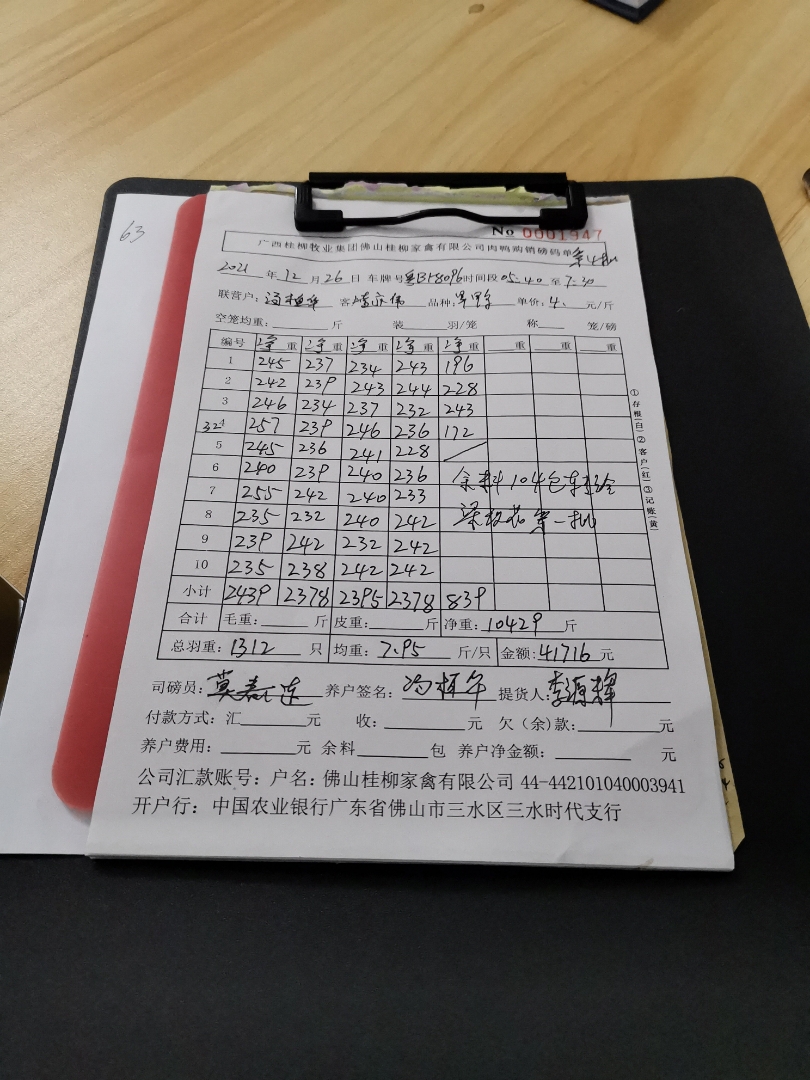 63
No 0001947
广西桂柳牧业集团佛山桂柳家禽有限公司肉鸭购销磅码单
第4批
2021年12月26日 车牌号粤BF8096时间段05:40至7:30
联营户： 客 伟 品种： 单价：4. 元/斤
空笼均重： 斤 装 羽/笼 称 笼/磅
编号 净重 净重 净重 净重 净重 重 重 重
1 245 237 234 243 196
2 242 239 243 244 228
3 246 234 237 232 243
324 257 239 246 236 172
5 245 236 241 228
6 240 239 240 236
余料104包
7 255 242 240 233
8 235 232 240 242
第一批
9 239 242 232 242
10 235 238 242 242
小计 2439 2378 2395 2378 839
合计 毛重： 斤 皮重： 斤 净重：10429 斤
总羽重：1312 只 均重：7.95 斤/只 金额：41716元
司磅员：莫 莲 养户签名：冯 年 提货人：李源辉
付款方式：汇 元 收： 元 欠（余）款： 元
养户费用： 元 余料 包 养户净金额： 元
公司汇款账号：户名：佛山桂柳家禽有限公司 44-442101040003941
开户行：中国农业银行广东省佛山市三水区三水时代支行
①存根(白)②客户(红)③记账(黄)